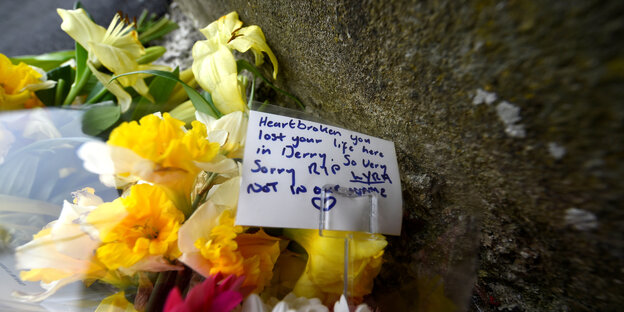 Heartbroken you
lost your life here
in Derry. So Very
Sorry RIP LYRA
NOT IN OUR NAME
♡